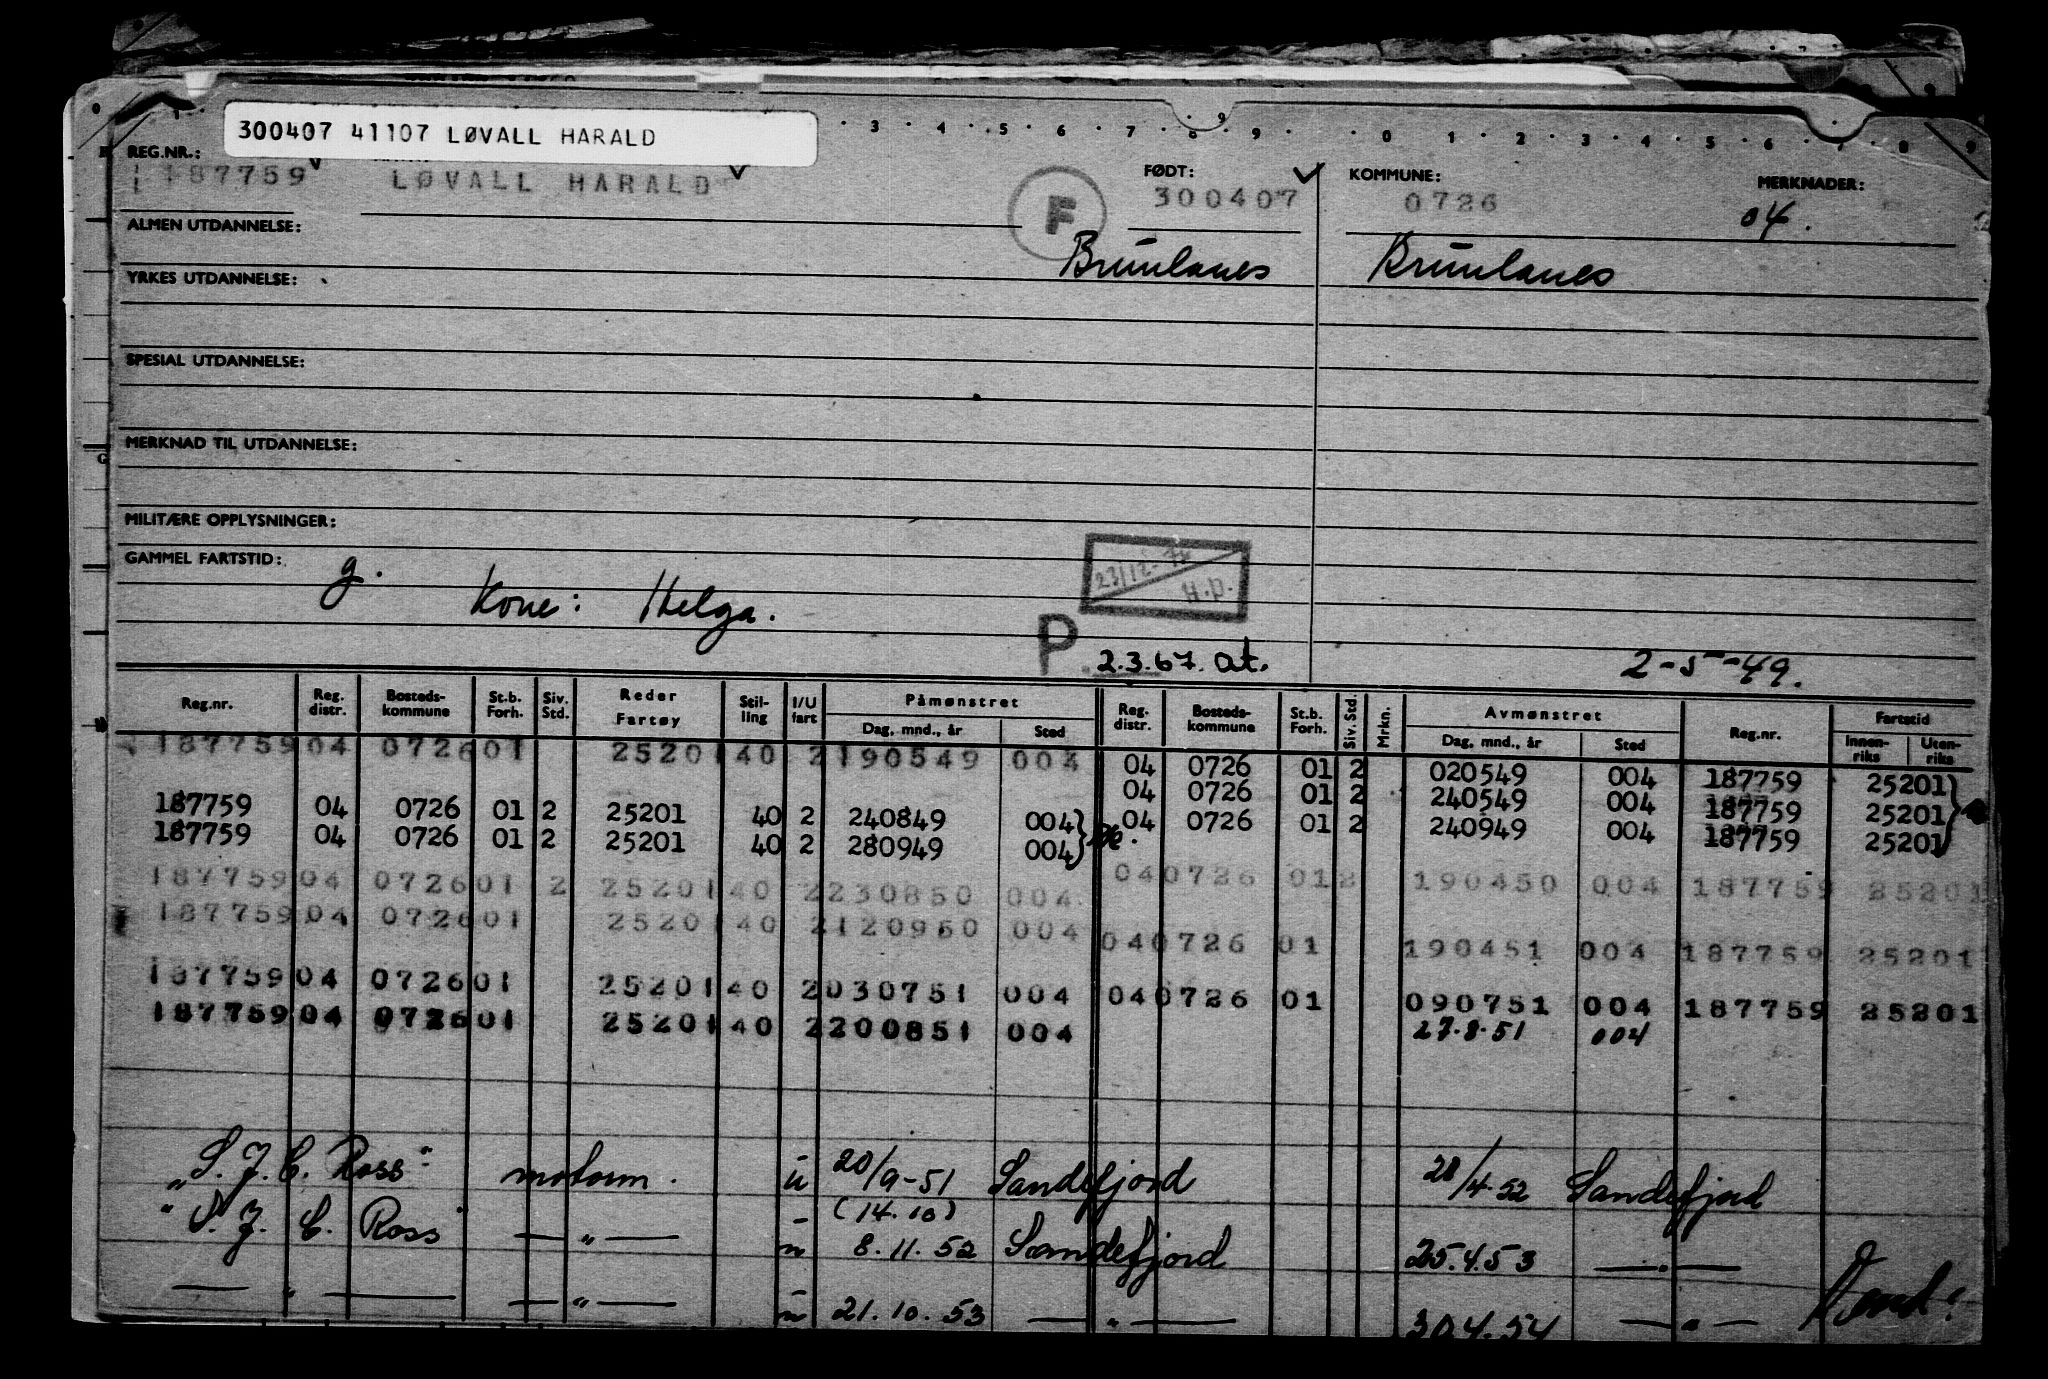 300407 41107 LØVALL HARALD
3 4 5 6 7 8 9 0 1 2 3 4 5 6 7 8 9
REG.NR.: FØDT: KOMMUNE: MERKNADER:
187759 LØVALL HARALD F 300407 0726 04.
ALMEN UTDANNELSE: Brunlanes Brunlanes
YRKES UTDANNELSE:
SPESIAL UTDANNELSE:
MERKNAD TIL UTDANNELSE:
MILITÆRE OPPLYSNINGER:
GAMMEL FARTSTID: g. Kone: Helga.
H.p.
P 2.3.67. at. 2-5-49.
Reg.nr. Reg. distr. Bosteds- kommune St.b. Forh. Siv. Std. Reder Fartøy Stil- ling I/U fart Påmønstret Dag, mnd., år Sted Reg. distr. Bosteds- kommune St.b. Forh. Siv. Std. Mrkn. Avmønstret Dag, mnd., år Sted Reg.nr. Fartstid Innen- riks Uten- riks
187759 04 0726 01 25201 40 2 190549 004 04 0726 01 2 020549 004 187759 25201
04 0726 01 2 240549 004 187759 25201
187759 04 0726 01 2 25201 40 2 240849 004 04 0726 01 2 240949 004 187759 25201
187759 04 0726 01 2 25201 40 2 280949 004
187759 04 0726 01 2 25201 40 2 230850 004 04 0726 01 2 190450 004 187759 25201
187759 04 0726 01 25201 40 2 120950 004 04 0726 01 190451 004 187759 25201
187759 04 0726 01 25201 40 2 030751 004 04 0726 01 090751 004 187759 25201
187759 04 0726 01 25201 40 2 200851 004 27.8.51 004
"S. J. C. Ross" motorm. u 20/9-51 Sandefjord 28/4.52 Sandefjord
(14.10)
"S. J. C. Ross" —"— u 8.11.52 Sandefjord 25.4.53 —"—
—"— —"— u 21.10.53 —"— 30.4.54 —"— Vend!